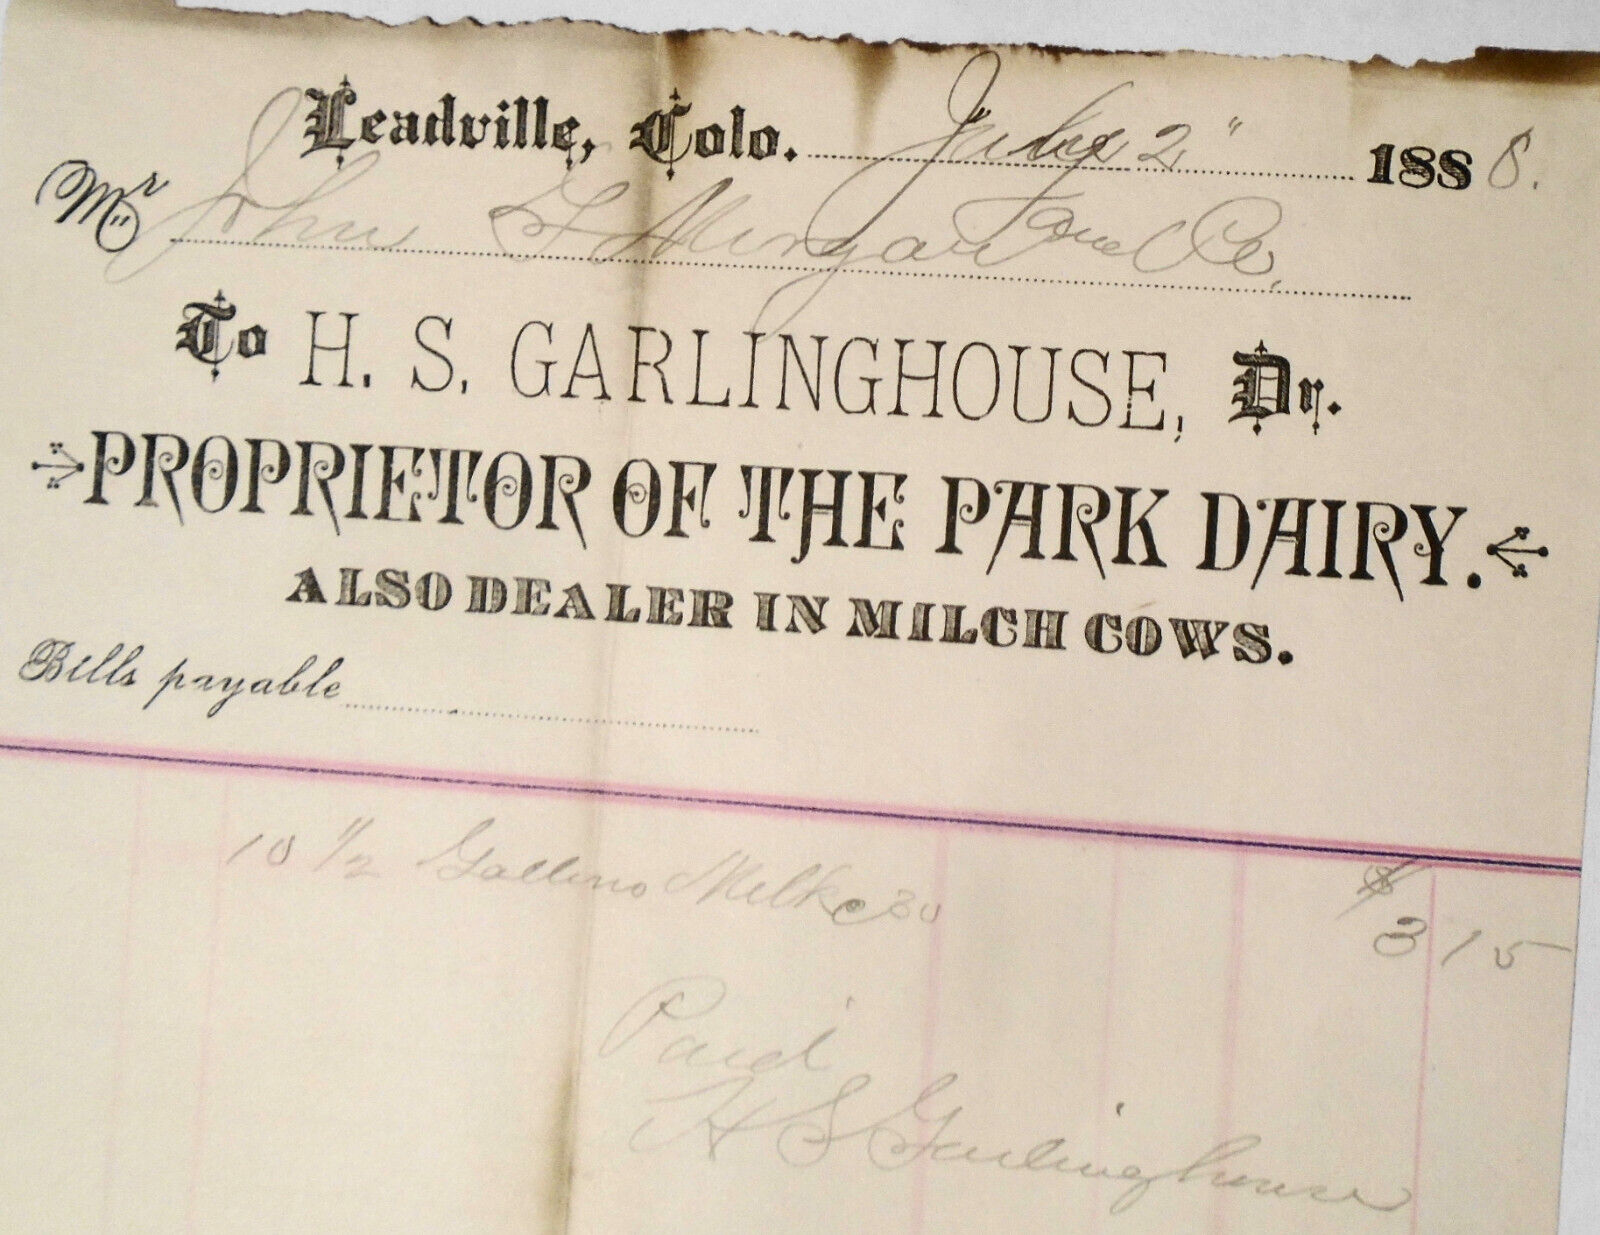 Leadville, Colo. 2" 1888.
Mr John F Morgan and Co.
To H. S. GARLINGHOUSE, Dr.
PROPRIETOR OF THE PARK DAIRY.
ALSO DEALER IN MILCH COWS.
Bills payable
10 1/2 Gallons Milk @ 30 $ 3 15
Paid
H S Garlinghouse